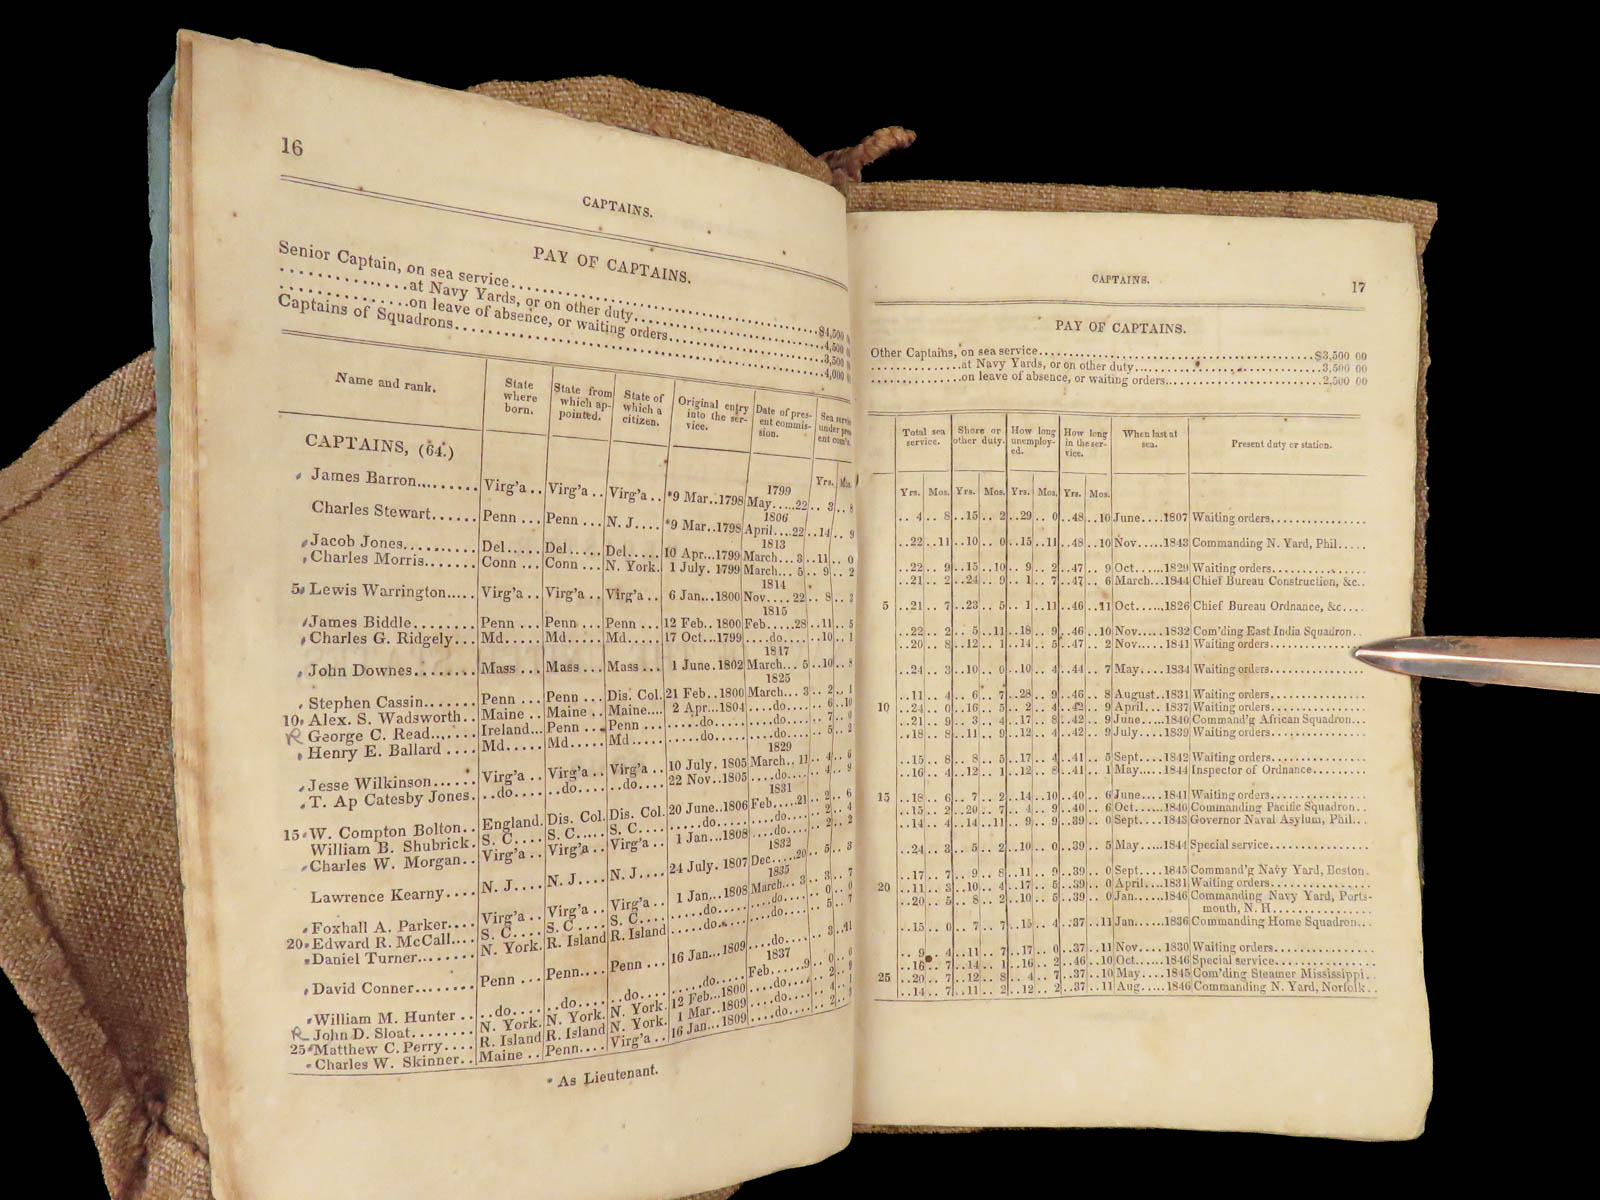 16
CAPTAINS.
PAY OF CAPTAINS.
Senior Captain, on sea service $4,500
at Navy Yards, or on other duty 4,500
on leave of absence, or waiting orders 3,500
Captains of Squadrons 4,000
Name and rank. State where born. State from which appointed. State of which a citizen. Original entry into the service. Date of present commission. Sea service under present com'n.
Yrs. Mos.
CAPTAINS, (64.)
1799
James Barron Virg'a Virg'a Virg'a *9 Mar. 1798 May 22 3 8
1806
Charles Stewart Penn Penn N. J. *9 Mar. 1798 April 22 14 9
1813
Jacob Jones Del Del Del 10 Apr. 1799 March 3 11 0
Charles Morris Conn Conn N. York. 1 July. 1799 March 5 9 2
1814
5 Lewis Warrington Virg'a Virg'a Virg'a 6 Jan. 1800 Nov. 22 8 3
1815
James Biddle Penn Penn Penn 12 Feb. 1800 Feb. 28 11 5
Charles G. Ridgely Md. Md. Md. 17 Oct. 1799 do. 10 1
1817
John Downes Mass Mass Mass 1 June. 1802 March 5 10 8
1825
Stephen Cassin Penn Penn Dis. Col. 21 Feb. 1800 March 3 2 1
10 Alex. S. Wadsworth Maine Maine Maine 2 Apr. 1804 do. 6 10
R George C. Read Ireland Penn Penn do. do. 7 0
Henry E. Ballard Md. Md. Md. do. do. 5 2
1829
Jesse Wilkinson Virg'a Virg'a Virg'a 10 July. 1805 March 11 4 6
T. Ap Catesby Jones do. do. do. 22 Nov. 1805 do. 4 9
1831
15 W. Compton Bolton England. Dis. Col. Dis. Col. 20 June. 1806 Feb. 21 2 6
William B. Shubrick S. C. S. C. S. C. do. do. 2 4
Charles W. Morgan Virg'a Virg'a Virg'a 1 Jan. 1808 do. 2 2
1832
Lawrence Kearny N. J. N. J. N. J. 24 July. 1807 Dec. 20 5 3
1835
Foxhall A. Parker Virg'a Virg'a Virg'a 1 Jan. 1808 March 3 3 7
20 Edward R. McCall S. C. S. C. S. C. do. do. 0 0
Daniel Turner N. York. R. Island R. Island do. do. 5 7
David Conner Penn Penn Penn 16 Jan. 1809 do. 3
1837
William M. Hunter do. do. do. do. Feb. 9 0
R John D. Sloat N. York. N. York. N. York. 12 Feb. 1800 do. 2
25 Matthew C. Perry R. Island R. Island N. York. 1 Mar. 1809 do. 4
Charles W. Skinner Maine Penn Virg'a 16 Jan. 1809 do. 2
* As Lieutenant.
CAPTAINS. 17
PAY OF CAPTAINS.
Other Captains, on sea service $3,500 00
at Navy Yards, or on other duty 3,500 00
on leave of absence, or waiting orders 2,500 00
Total sea service. Shore or other duty. How long unemployed. How long in the service. When last at sea. Present duty or station.
Yrs. Mos. Yrs. Mos. Yrs. Mos. Yrs. Mos.
4 8 15 2 29 0 48 10 June 1807 Waiting orders
22 11 10 0 15 11 48 10 Nov. 1843 Commanding N. Yard, Phil.
22 9 15 10 9 2 47 9 Oct. 1829 Waiting orders
21 2 24 9 1 7 47 6 March 1844 Chief Bureau Construction, &c.
5 21 7 23 5 1 11 46 11 Oct. 1826 Chief Bureau Ordnance, &c.
22 2 5 11 18 9 46 10 Nov. 1832 Com'ding East India Squadron
20 8 12 1 14 5 47 2 Nov. 1841 Waiting orders
24 3 10 0 10 4 44 7 May 1834 Waiting orders
11 4 6 7 28 9 46 8 August 1831 Waiting orders
10 24 0 16 5 2 4 42 9 April 1837 Waiting orders
21 9 3 4 17 8 42 9 June 1840 Command'g African Squadron
18 8 11 9 12 4 42 9 July 1839 Waiting orders
15 8 8 5 17 4 41 5 Sept. 1842 Waiting orders
16 4 12 1 12 8 41 1 May 1844 Inspector of Ordnance
15 18 6 7 2 14 10 40 6 June 1841 Waiting orders
15 2 20 7 4 9 40 6 Oct. 1840 Commanding Pacific Squadron
14 4 14 11 9 9 39 0 Sept. 1843 Governor Naval Asylum, Phil.
24 3 5 2 10 0 39 5 May 1844 Special service
17 7 9 8 11 9 39 0 Sept. 1845 Command'g Navy Yard, Boston
20 11 3 10 4 17 5 39 0 April 1831 Waiting orders
20 5 8 2 10 5 39 0 Jan. 1846 Commanding Navy Yard, Ports-
mouth, N. H.
15 0 7 7 15 4 37 11 Jan. 1836 Commanding Home Squadron
9 4 11 7 17 0 37 11 Nov. 1830 Waiting orders
16 7 14 1 16 2 46 10 Oct. 1846 Special service
25 20 7 12 8 4 7 37 10 May 1845 Com'ding Steamer Mississippi
14 7 11 2 12 2 37 11 Aug. 1846 Commanding N. Yard, Norfolk